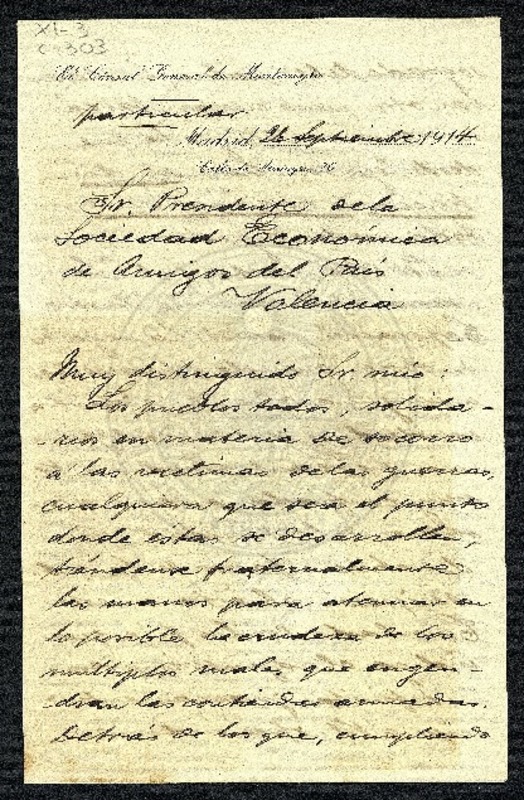 XI-3
C-303
El Cónsul General de Montenegro
particular
Madrid, 26 Septiembre 1914
Sr. Presidente de la
Sociedad Económica
de Amigos del País
Valencia
Muy distinguido Sr. mío:
Los pueblos todos, solida-
-rios en materia de socorro
a las víctimas de las guerras,
cualquiera que sea el punto
donde éstas se desarrollen,
tiéndense fraternalmente
las manos para atenuar en
lo posible la crudeza de los
múltiples males que engen-
dran las contiendas armadas.
Detrás de los que, cumpliendo